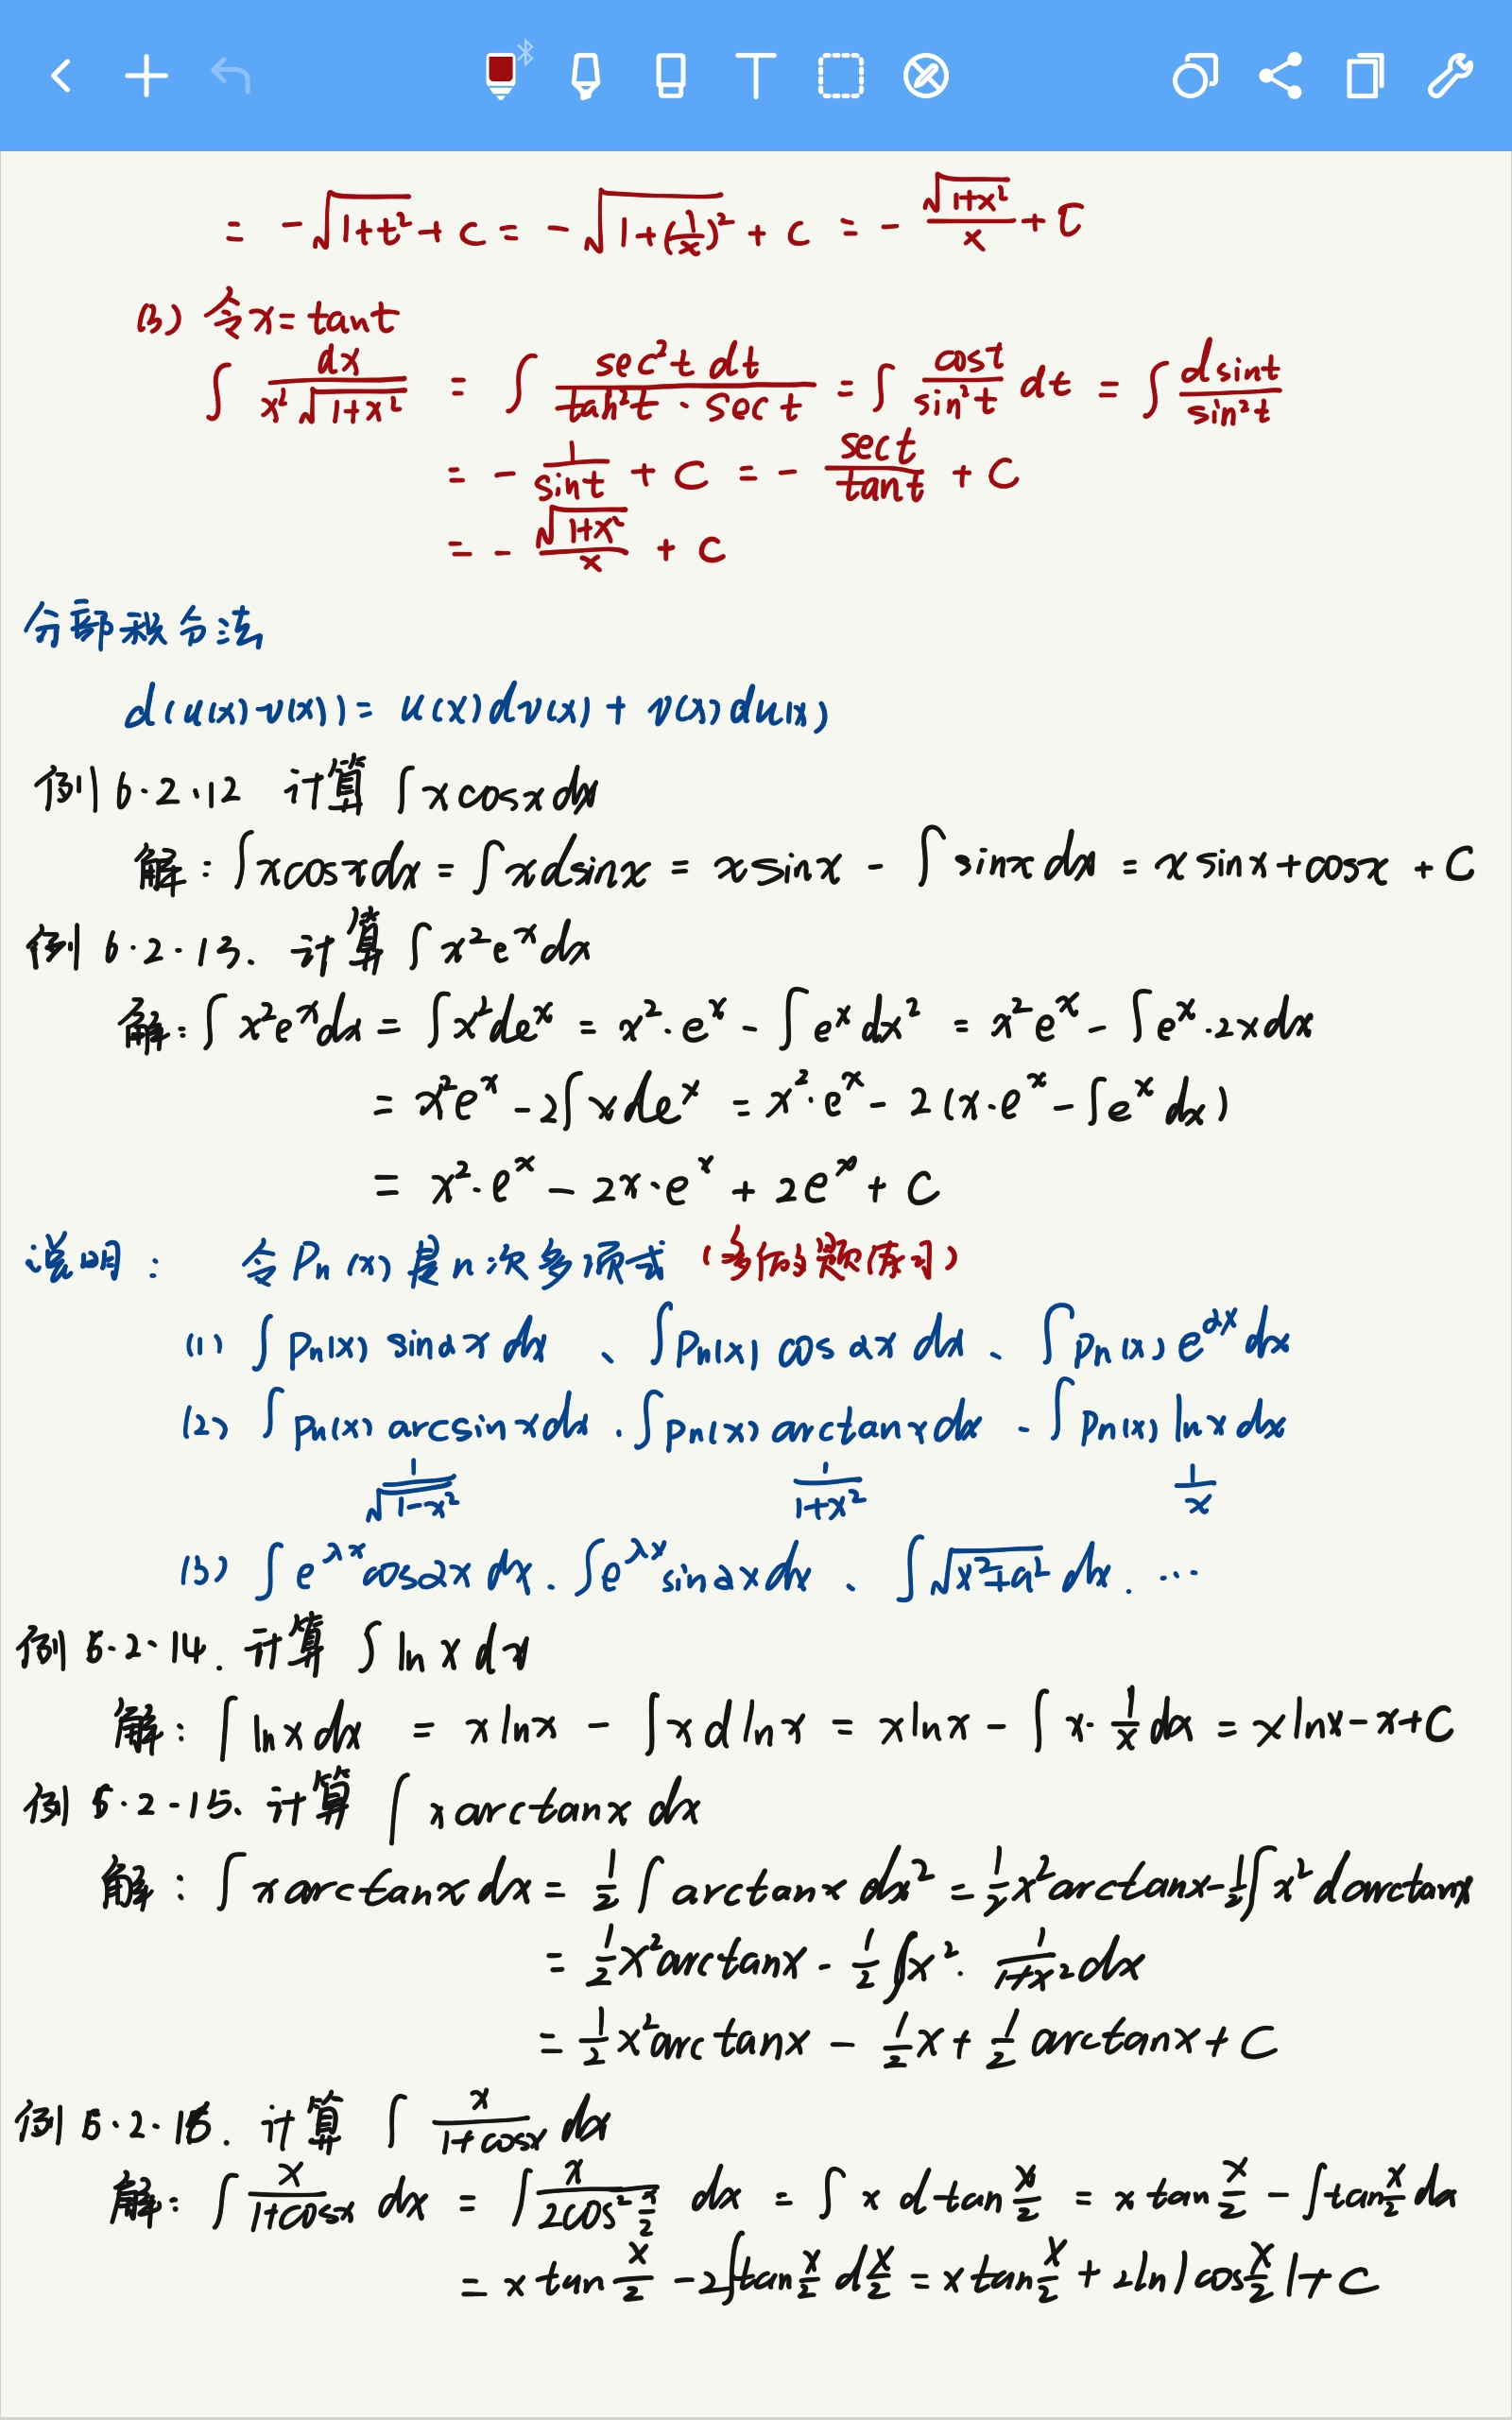 = -√(1+t²) + C = -√(1+(1/x)²) + C = - √(1+x²)/x + C
(3) 令x = tant
∫ dx/(x²√(1+x²)) = ∫ sec²t dt/(tan²t · sec t) = ∫ cost/sin²t dt = ∫ dsint/sin²t
= - 1/sint + C = - sect/tant + C
= - √(1+x²)/x + C
分部积分法
d(u(x)·v(x)) = u(x)dv(x) + v(x)du(x)
例 6.2.12 计算 ∫xcosxdx
解: ∫xcosxdx = ∫xdsinx = xsinx - ∫sinxdx = xsinx+cosx + C
例 6.2.13. 计算 ∫x²eˣdx
解: ∫x²eˣdx = ∫x²deˣ = x²·eˣ - ∫eˣdx² = x²eˣ - ∫eˣ·2xdx
= x²eˣ - 2∫xdeˣ = x²·eˣ - 2(x·eˣ - ∫eˣdx)
= x²·eˣ - 2x·eˣ + 2eˣ + C
说明: 令Pn(x)是n次多项式
(1) ∫Pn(x) sinαx dx 、∫Pn(x) cosαx dx 、∫Pn(x) e^(αx) dx
(2) ∫Pn(x) arcsinxdx .∫Pn(x) arctanxdx - ∫Pn(x) lnxdx
1/√(1-x²) 1/(1+x²) 1/x
(3) ∫e^(λx)cosαx dx. ∫e^(λx)sinαxdx 、∫√(x²±a²) dx. …
例 6.2.14. 计算 ∫lnxdx
解: ∫lnxdx = xlnx - ∫xdlnx = xlnx - ∫x·1/x dx = xlnx-x+C
例 6.2.15. 计算 ∫xarctanx dx
解: ∫xarctanxdx = 1/2∫arctanx dx² = 1/2x²arctanx-1/2∫x²darctanx
= 1/2x²arctanx - 1/2∫x²· 1/(1+x²)dx
= 1/2x²arctanx - 1/2x + 1/2arctanx + C
例 6.2.16. 计算 ∫ x/(1+cosx) dx
解: ∫ x/(1+cosx) dx = ∫ x/(2cos² x/2) dx = ∫ x dtan x/2 = x tan x/2 - ∫tan x/2 dx
= x tan x/2 - 2∫tan x/2 d x/2 = x tan x/2 + 2ln|cos x/2| + C